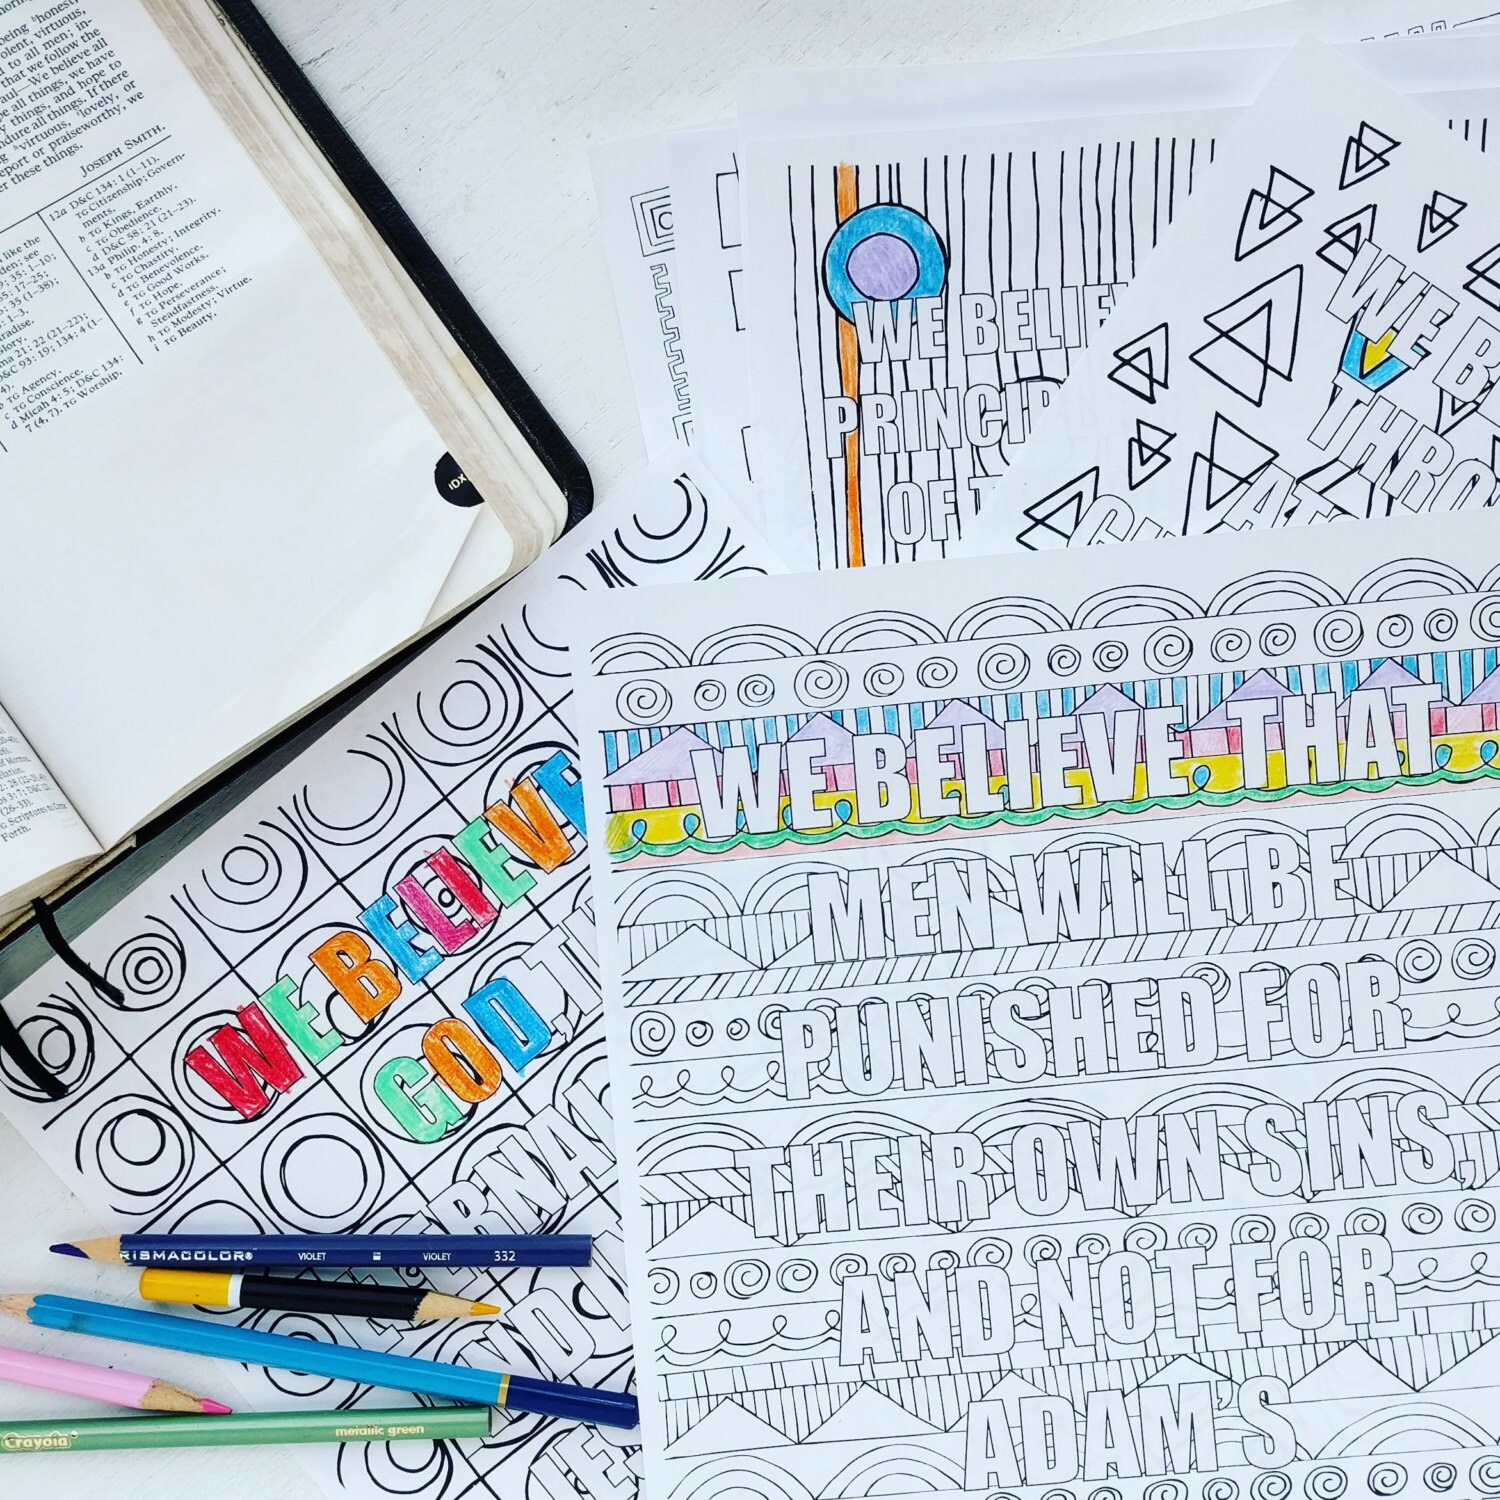 being ʰhonest,
olent, virtuous,
d to all men; in-
that we follow the
aul—We believe all
pe all things, we have
y things, and hope to
ndure all things. If there
g ʰvirtuous, ⁱlovely, or
eport or praiseworthy, we
er these things.
JOSEPH SMITH.
12a D&C 134: 1 (1–11).
TG Citizenship; Govern-
ments.
b TG Kings, Earthly.
c TG Obedience.
d D&C 58: 21 (21–23).
13a Philip. 4: 8.
b TG Honesty; Integrity.
c TG Chastity.
d TG Benevolence.
e TG Good Works.
f TG Hope.
g TG Perseverance;
Steadfastness.
h TG Modesty; Virtue.
i TG Beauty.
like the
den; see
35: 1–10;
17–25;
35 (1–38);
1–3.
aradise.
lory.
ma 21: 22 (21–22);
D&C 93: 19; 134: 4 (1–
4).
b TG Agency.
c TG Conscience.
d Micah 4: 5; D&C 134:
7 (4, 7). TG Worship.
IDX
of Mormon.
TG Scriptures to Come
Forth.
WE BELIEV
PRINCIP
OF T
WE B
THRO
WE BELIEVE
GOD, T
WE BELIEVE THAT
MEN WILL BE
PUNISHED FOR
THEIR OWN SINS,
AND NOT FOR
ADAM'S
RISMACOLOR® VIOLET VIOLET 332
Crayola metallic green